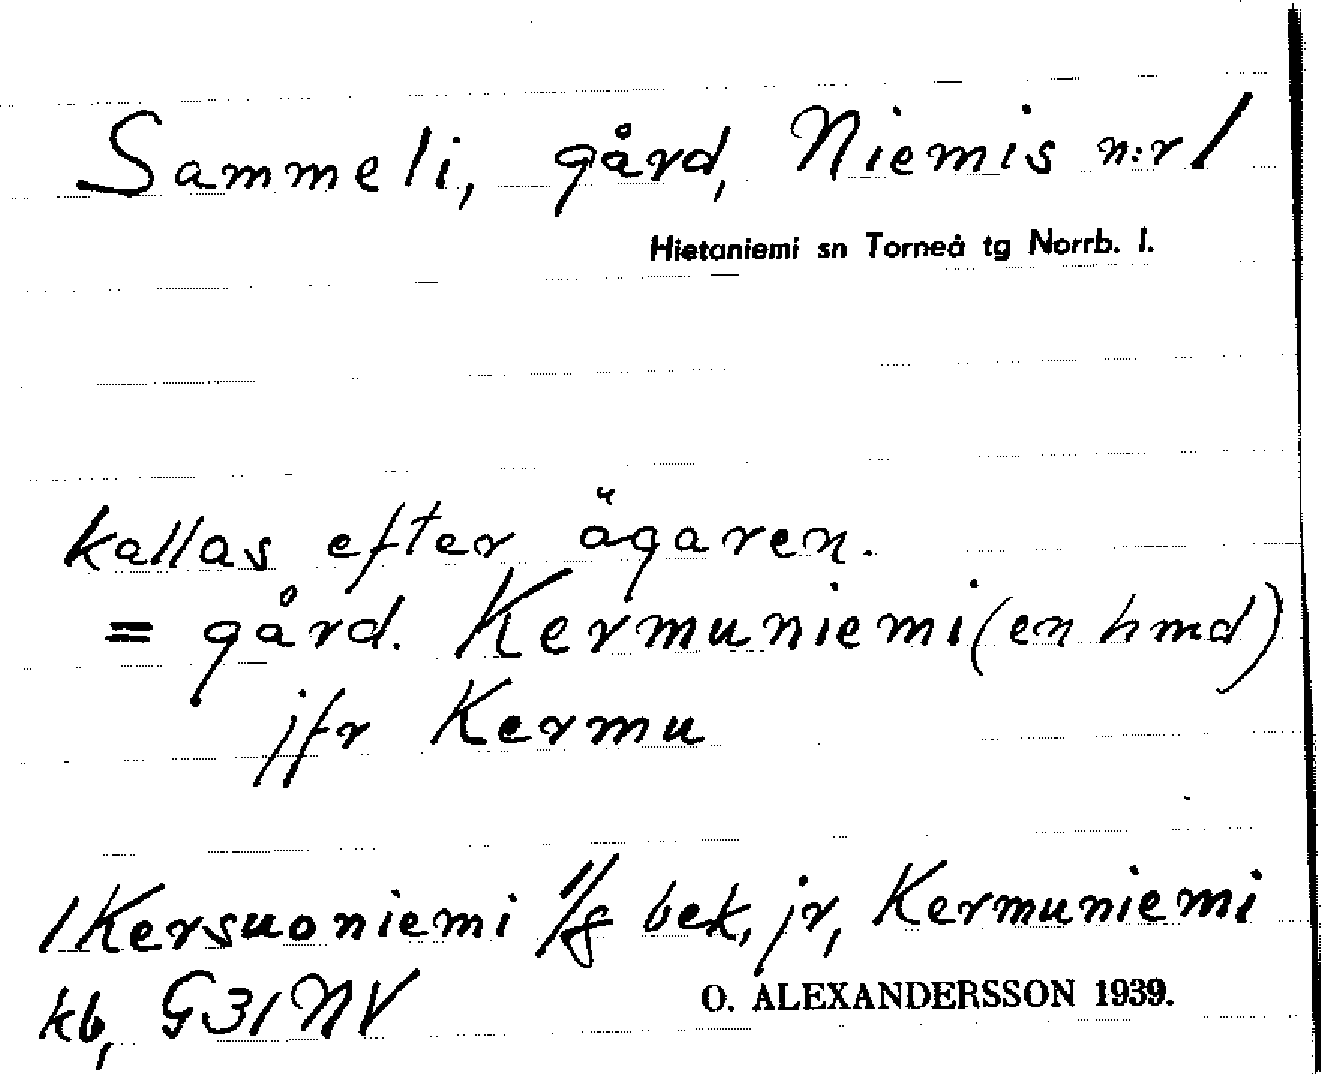 Sammeli, gård, Niemis n:r 1
Hietaniemi sn Torneå tg Norrb. l.
kallas efter ägaren.
= gård. Kermuniemi (en hmd)
jfr Kermu
1 Kersuoniemi 1/8 bek, jr, Kermuniemi
kb, G31NV
O. ALEXANDERSSON 1939.